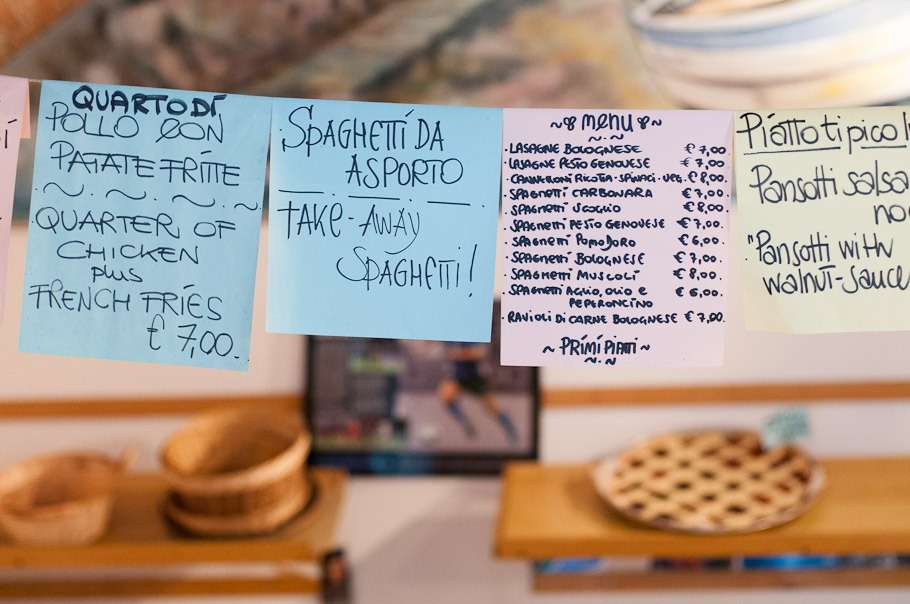 QUARTO DÍ
POLLO CON
PATATE FRITTE
QUARTER OF
CHICKEN
plus
FRENCH FRIES
€ 7,00.
SPAGHETTÍ DA
ASPORTO
TAKE-AWAY
SPAGHETTI!
menu
·LASAGNE BOLOGNESE € 7,00
·LASAGNE PESTO GENOVESE € 7,00
·CANNELLONI RICOTTA-SPINACI-VEG. € 8,00.
·SPAGHETTI CARBONARA € 7,00.
·SPAGHETTI SCOGLIO € 8,00.
·SPAGHETTI PESTO GENOVESE € 7,00.
·SPAGHETTI POMODORO € 6,00.
·SPAGHETTI BOLOGNESE € 7,00.
·SPAGHETTI MUSCOLI € 8,00.
·SPAGHETTI AGLIO, OLIO E € 6,00.
PEPERONCINO
·RAVIOLI DI CARNE BOLOGNESE € 7,00.
~ PRIMI PIATTI ~
Piatto tipico
Pansotti salsa
"Pansotti with
walnut-sauce